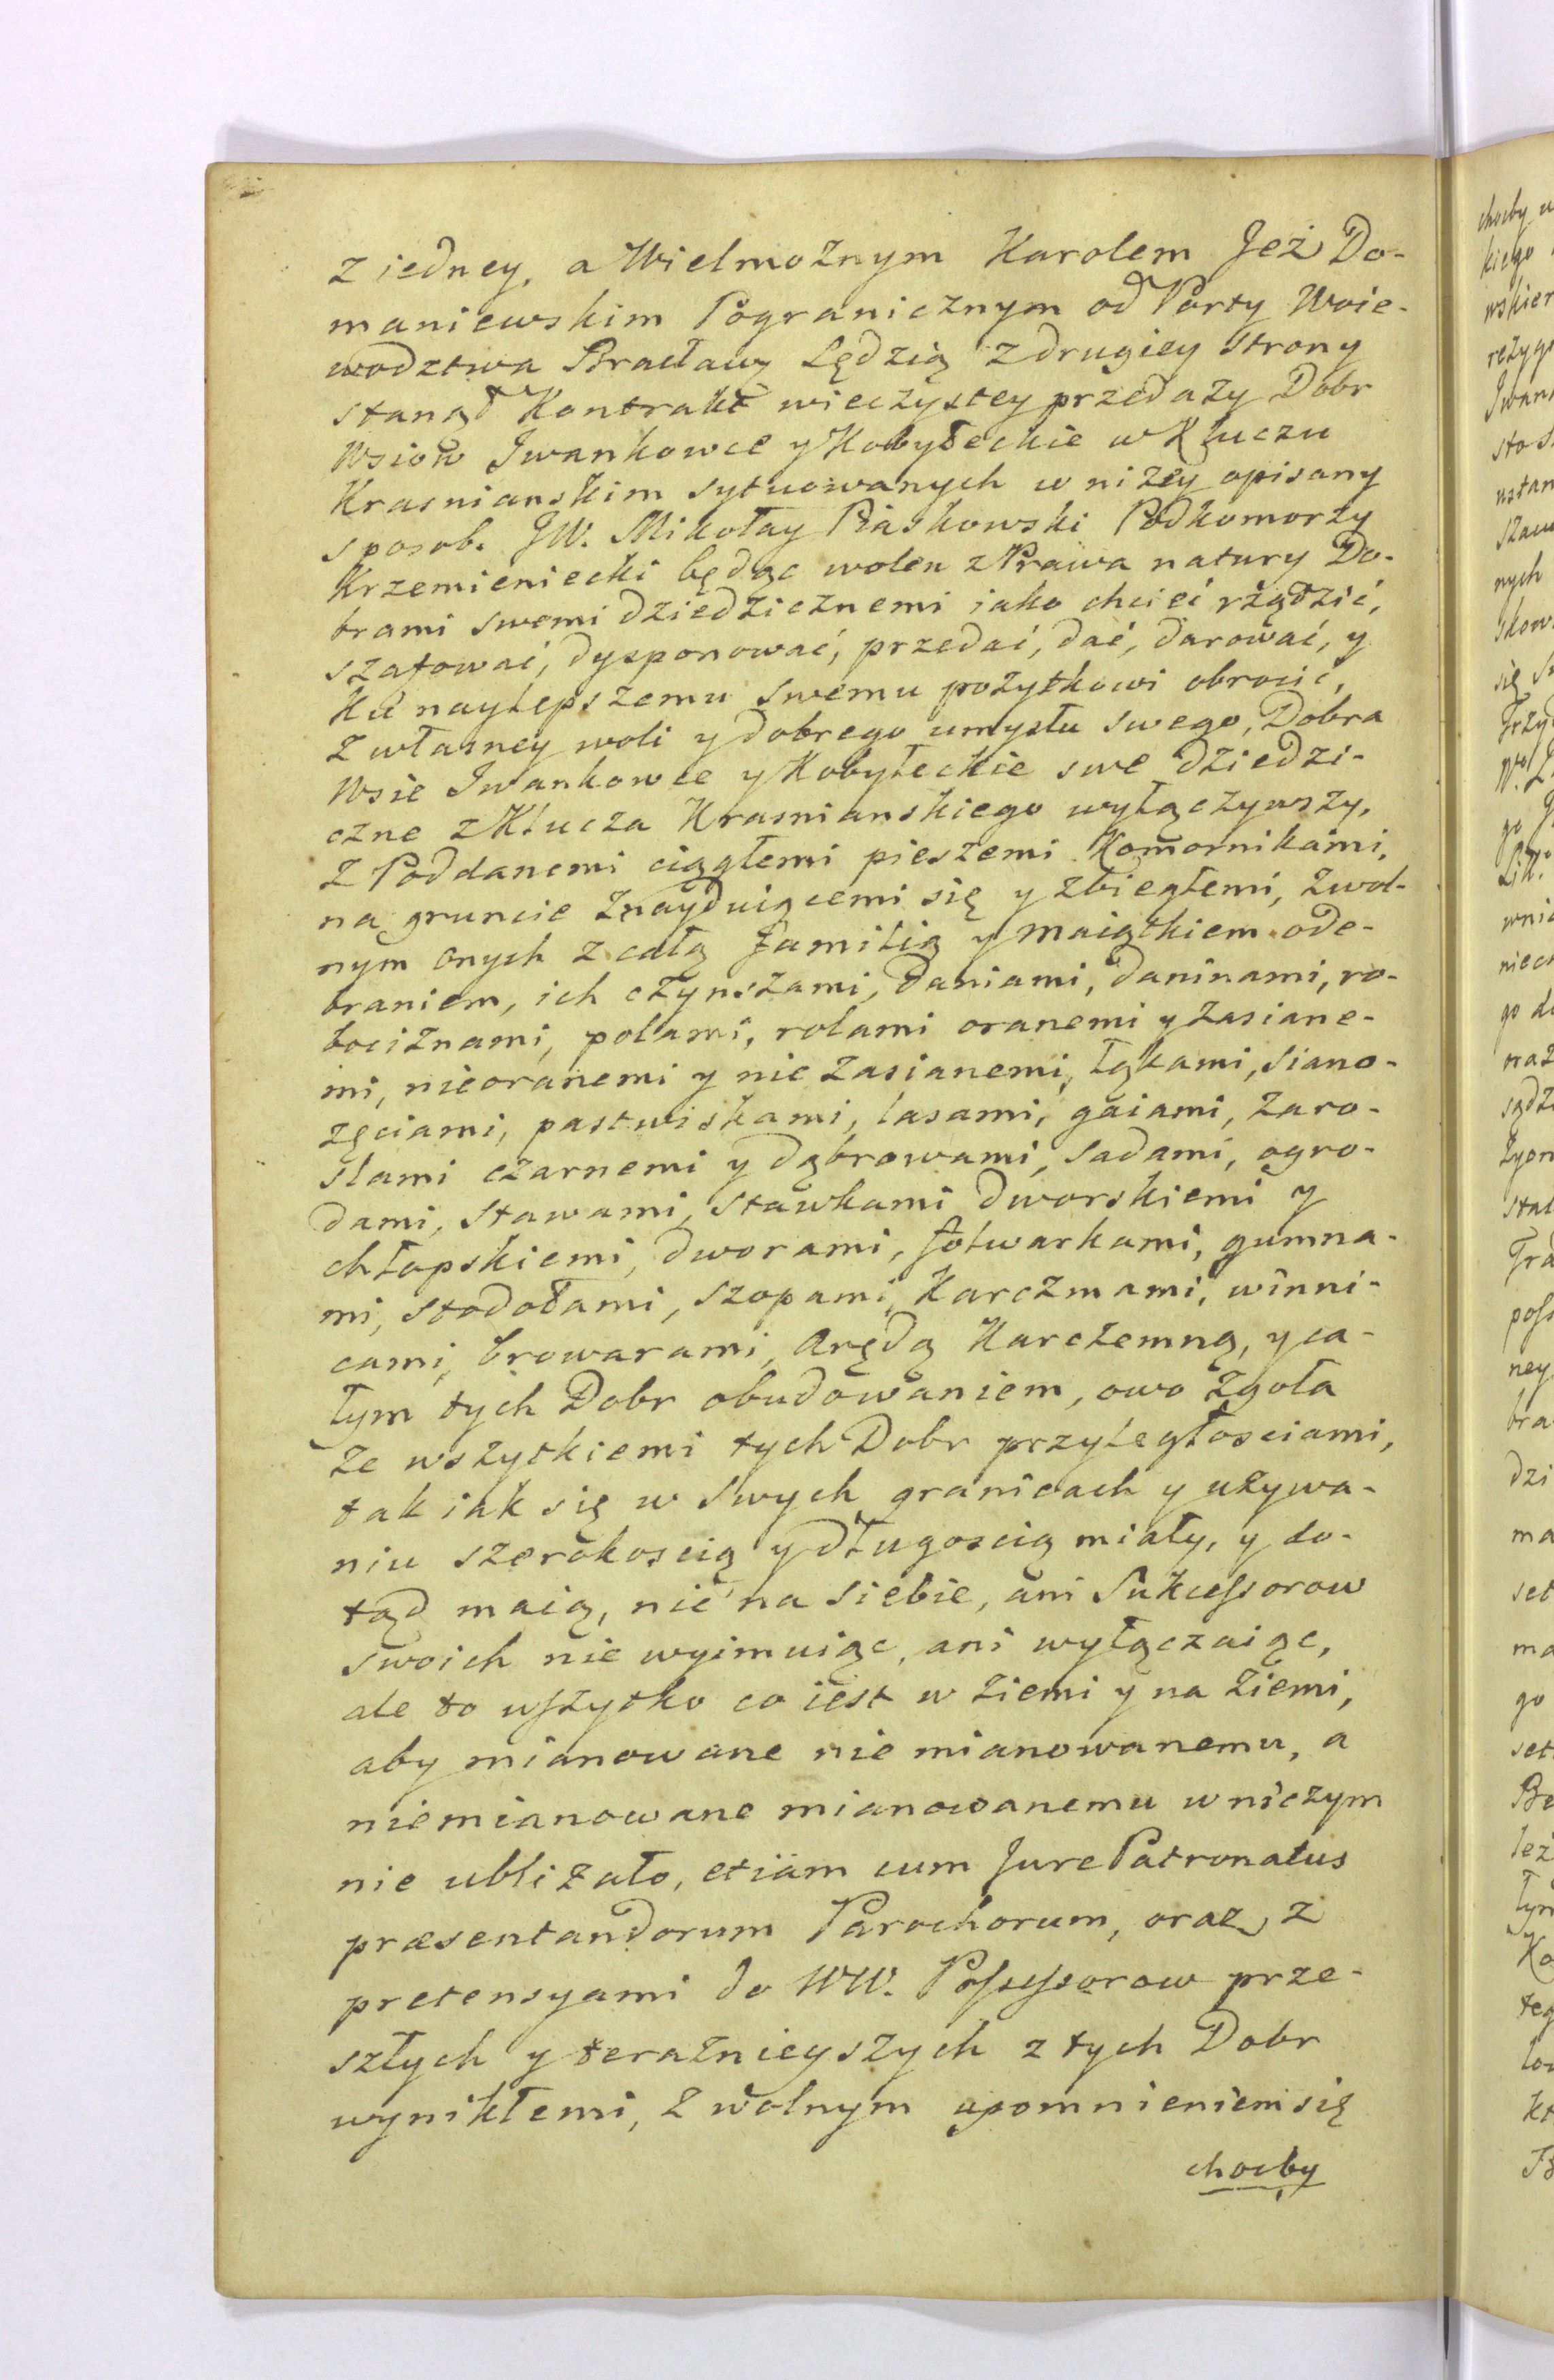 z iedney, a Wielmożnym Karolem Jeż Do-
maniewskim Pogranicznym od Porty Woie-
wodztwa Bracławg Sędzią z drugiey strony
stanął Kontrakt wieczystey przedaży Dobr
Wsiow Iwankowce y Kobyłeckie w Kluczu
Krasnianskim sytuowanych w niżey opisany
sposob. JW. Mikołay Piaskowski Podkomorzy
Krzemieniecki będąc wolen z Prawa natury Do-
brami swemi dziedzicznemi iako chcieć rządzić,
szafować, dysponować, przedać, dać, darować, y
ku naylepszemu swemu pożytkowi obrocić,
z własney woli y dobrego umysłu swego, Dobra
Wsie Iwankowce y Kobyłeckie swe dziedzi-
czne z Klucza Krasnianskiego wyłączywszy,
z Poddanemi ciągłemi pieszemi Komornikami,
na gruncie znayduiącemi się y zbiegłemi, z wol-
nym onych z całą Familią y maiątkiem ode-
braniem, ich czynszami, daniami, daninami, ro-
bociznami, polami, rolami oranemi y zasiane-
mi, nieoranemi y nie zasianemi, łąkami, siano-
zęciami, pastwiskami, lasami, gaiami, zaro-
slami czarnemi y dąbrowami, sadami, ogro-
dami, stawami, stawkami dworskiemi y
chłopskiemi, dworami, folwarkami, gumna-
mi, stodołami, szopami, karczmami, winni-
cami, browarami, Arędą Karczemną, y ca-
łym tych Dobr obudowaniem, owo zgoła
ze wszytkiemi tych Dobr przyległosciami,
tak iak się w swych granicach y używa-
niu szerokoscią y długoscią miały, y do-
tąd maią, nic na siebie, ani Sukcessorow
swoich nie wyimuiąc, ani wyłączaiąc,
ale to wszytko co iest w ziemi y na ziemi,
aby mianowane nie mianowanemu, a
niemianowane mianowanemu w niczym
nie ubliżało, etiam cum Jure Patronatus
præsentandorum Parochorum, oraz z
pretensyami do WW. Possessorow prze-
szłych y teraznieyszych z tych Dobr
wynikłemi, z wolnym upomnieniem się
choćby